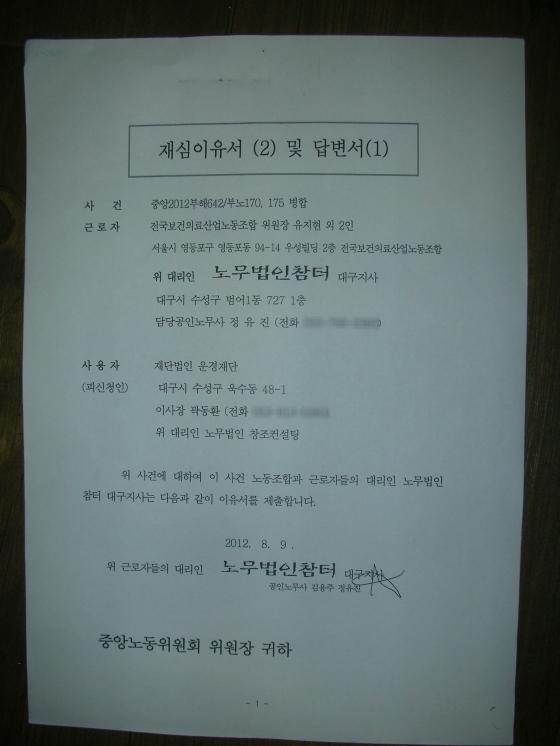 재심이유서 (2) 및 답변서(1)
사 건 중앙2012부해642/부노170, 175 병합
근 로 자 전국보건의료산업노동조합 위원장 유지현 외 2인
서울시 영등포구 영등포동 94-14 우성빌딩 2층 전국보건의료산업노동조합
위 대리인 노무법인참터 대구지사
대구시 수성구 범어1동 727 1층
담당공인노무사 정 유 진 (전화
사 용 자 재단법인 운경재단
(피신청인) 대구시 수성구 욱수동 48-1
이사장 곽동환 (전화
위 대리인 노무법인 창조컨설팅
위 사건에 대하여 이 사건 노동조합과 근로자들의 대리인 노무법인
참터 대구지사는 다음과 같이 이유서를 제출합니다.
2012. 8. 9.
위 근로자들의 대리인 노무법인참터 대구지사
공인노무사 김용주 정유진
중앙노동위원회 위원장 귀하
- 1 -